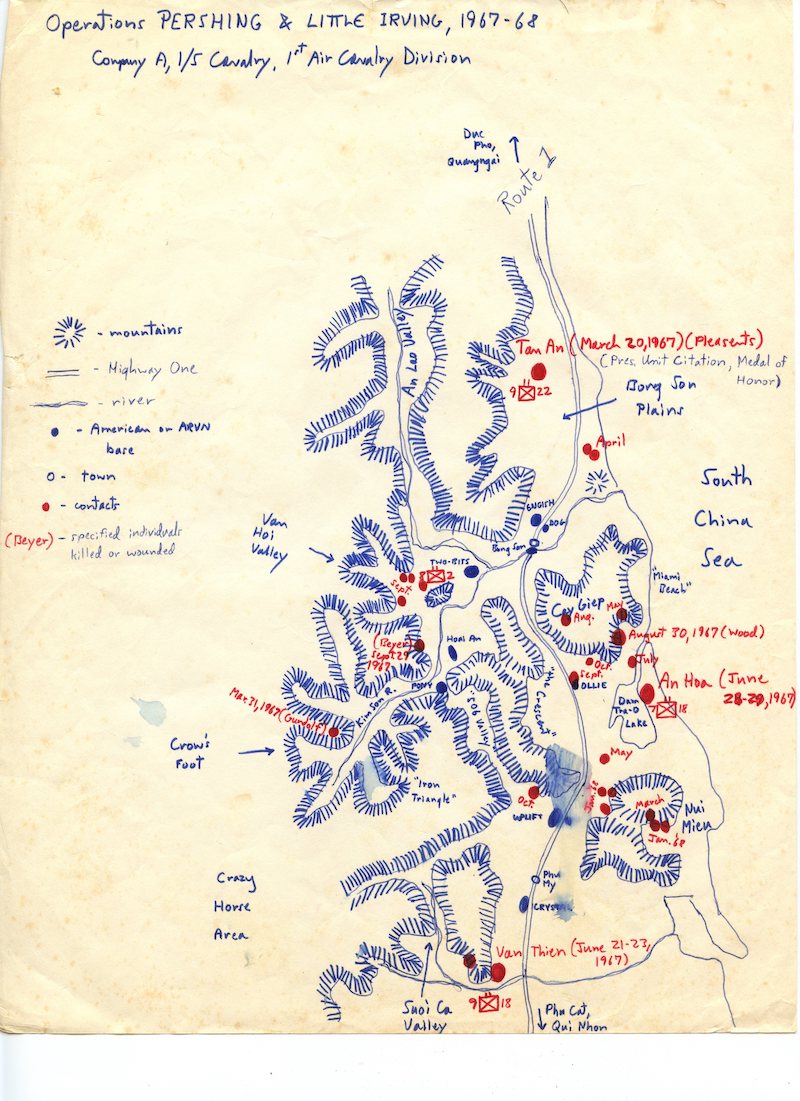 Operations PERSHING & LITTLE IRVING, 1967-68
Company A, 1/5 Cavalry, 1st Air Cavalry Division
Duc
Pho,
Quangngai
Route 1
- mountains
- Highway One
- river
- American or ARVN
base
- town
- contacts
(Beyer) - specified individuals
killed or wounded
An Lao Valley
Tam An (March 20, 1967) (Pleasents)
(Pres. Unit Citation, Medal of
Honor)
9 22
Bong Son
Plains
April
South
China
Sea
ENGISH
DOG
Bong Son
Van
Hoi
Valley
TWO-BITS
8 2
Sept.
"Miami
Beach"
Cay Giep
Aug.
May
August 30, 1967 (Wood)
(Beyer)
Sept 29
1967
Hoai An
Oct.
July
Sept.
OLLIE
An Hoa (June
28-29, 1967)
7 18
Dam
Tra-O
Lake
Mar. 31, 1967 (Gundolf)
Kim Son R.
PONY
506 Valley
"The Crescent"
Crow's
Foot
"Iron
Triangle"
May
Oct.
UPLIFT
Jan. 68
March
Jan. 68
Nui
Mieu
Crazy
Horse
Area
Phu
My
CRYSTAL
Van Thien (June 21-23,
1967)
9 18
Suoi Ca
Valley
Phu Cat,
Qui Nhon